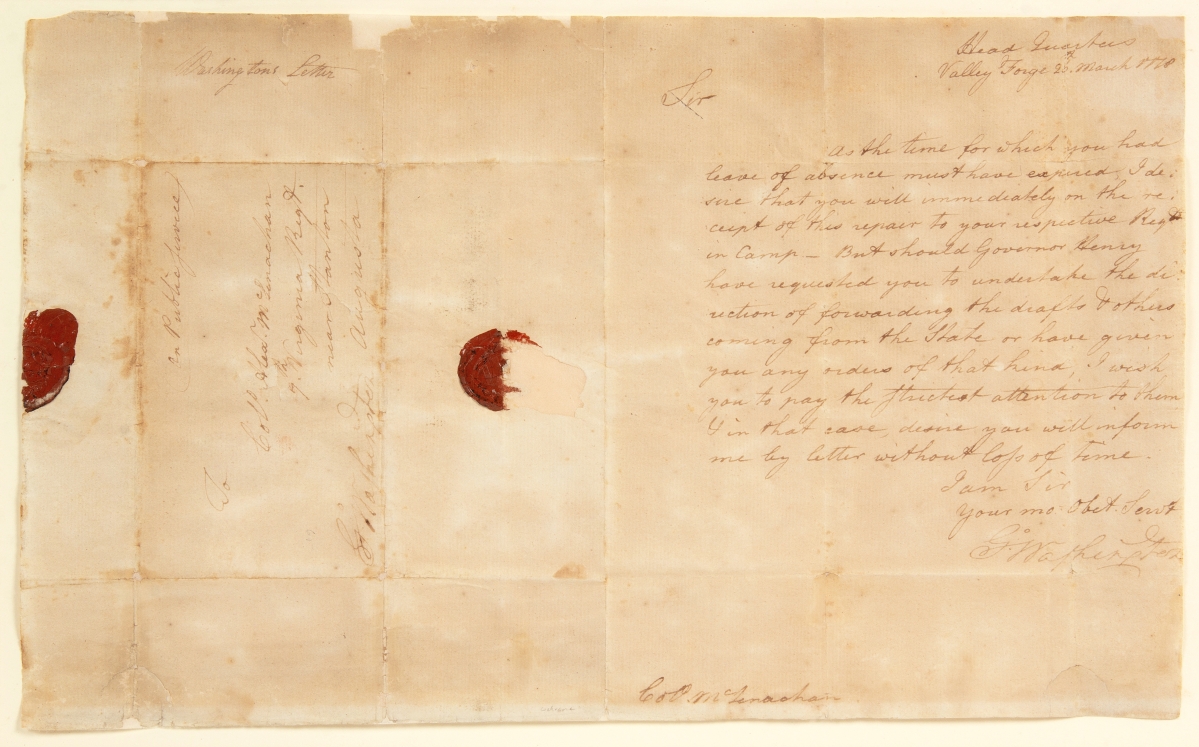 Washingtons Letter
on Public Service
To
Colo. Alexr. McLenachan
9th. Virginia Regt.
near Stanton
Augusta
Go: Washington
Head Quarters
Valley Forge 20th. March 1778
Sir
As the time for which you had
leave of absence must have expired, I de-
sire that you will immediately on the re-
ceipt of this repair to your respective Regt.
in Camp – But should Governor Henry
have requested you to undertake the di-
rection of forwarding the drafts & others
coming from the State or have given
you any orders of that kind, I wish
you to pay the strictest attention to them
& in that case, desire you will inform
me by letter without loss of time.
I am Sir
Your mo. Obet. Servt
Go: Washington
Colo. McLenachan